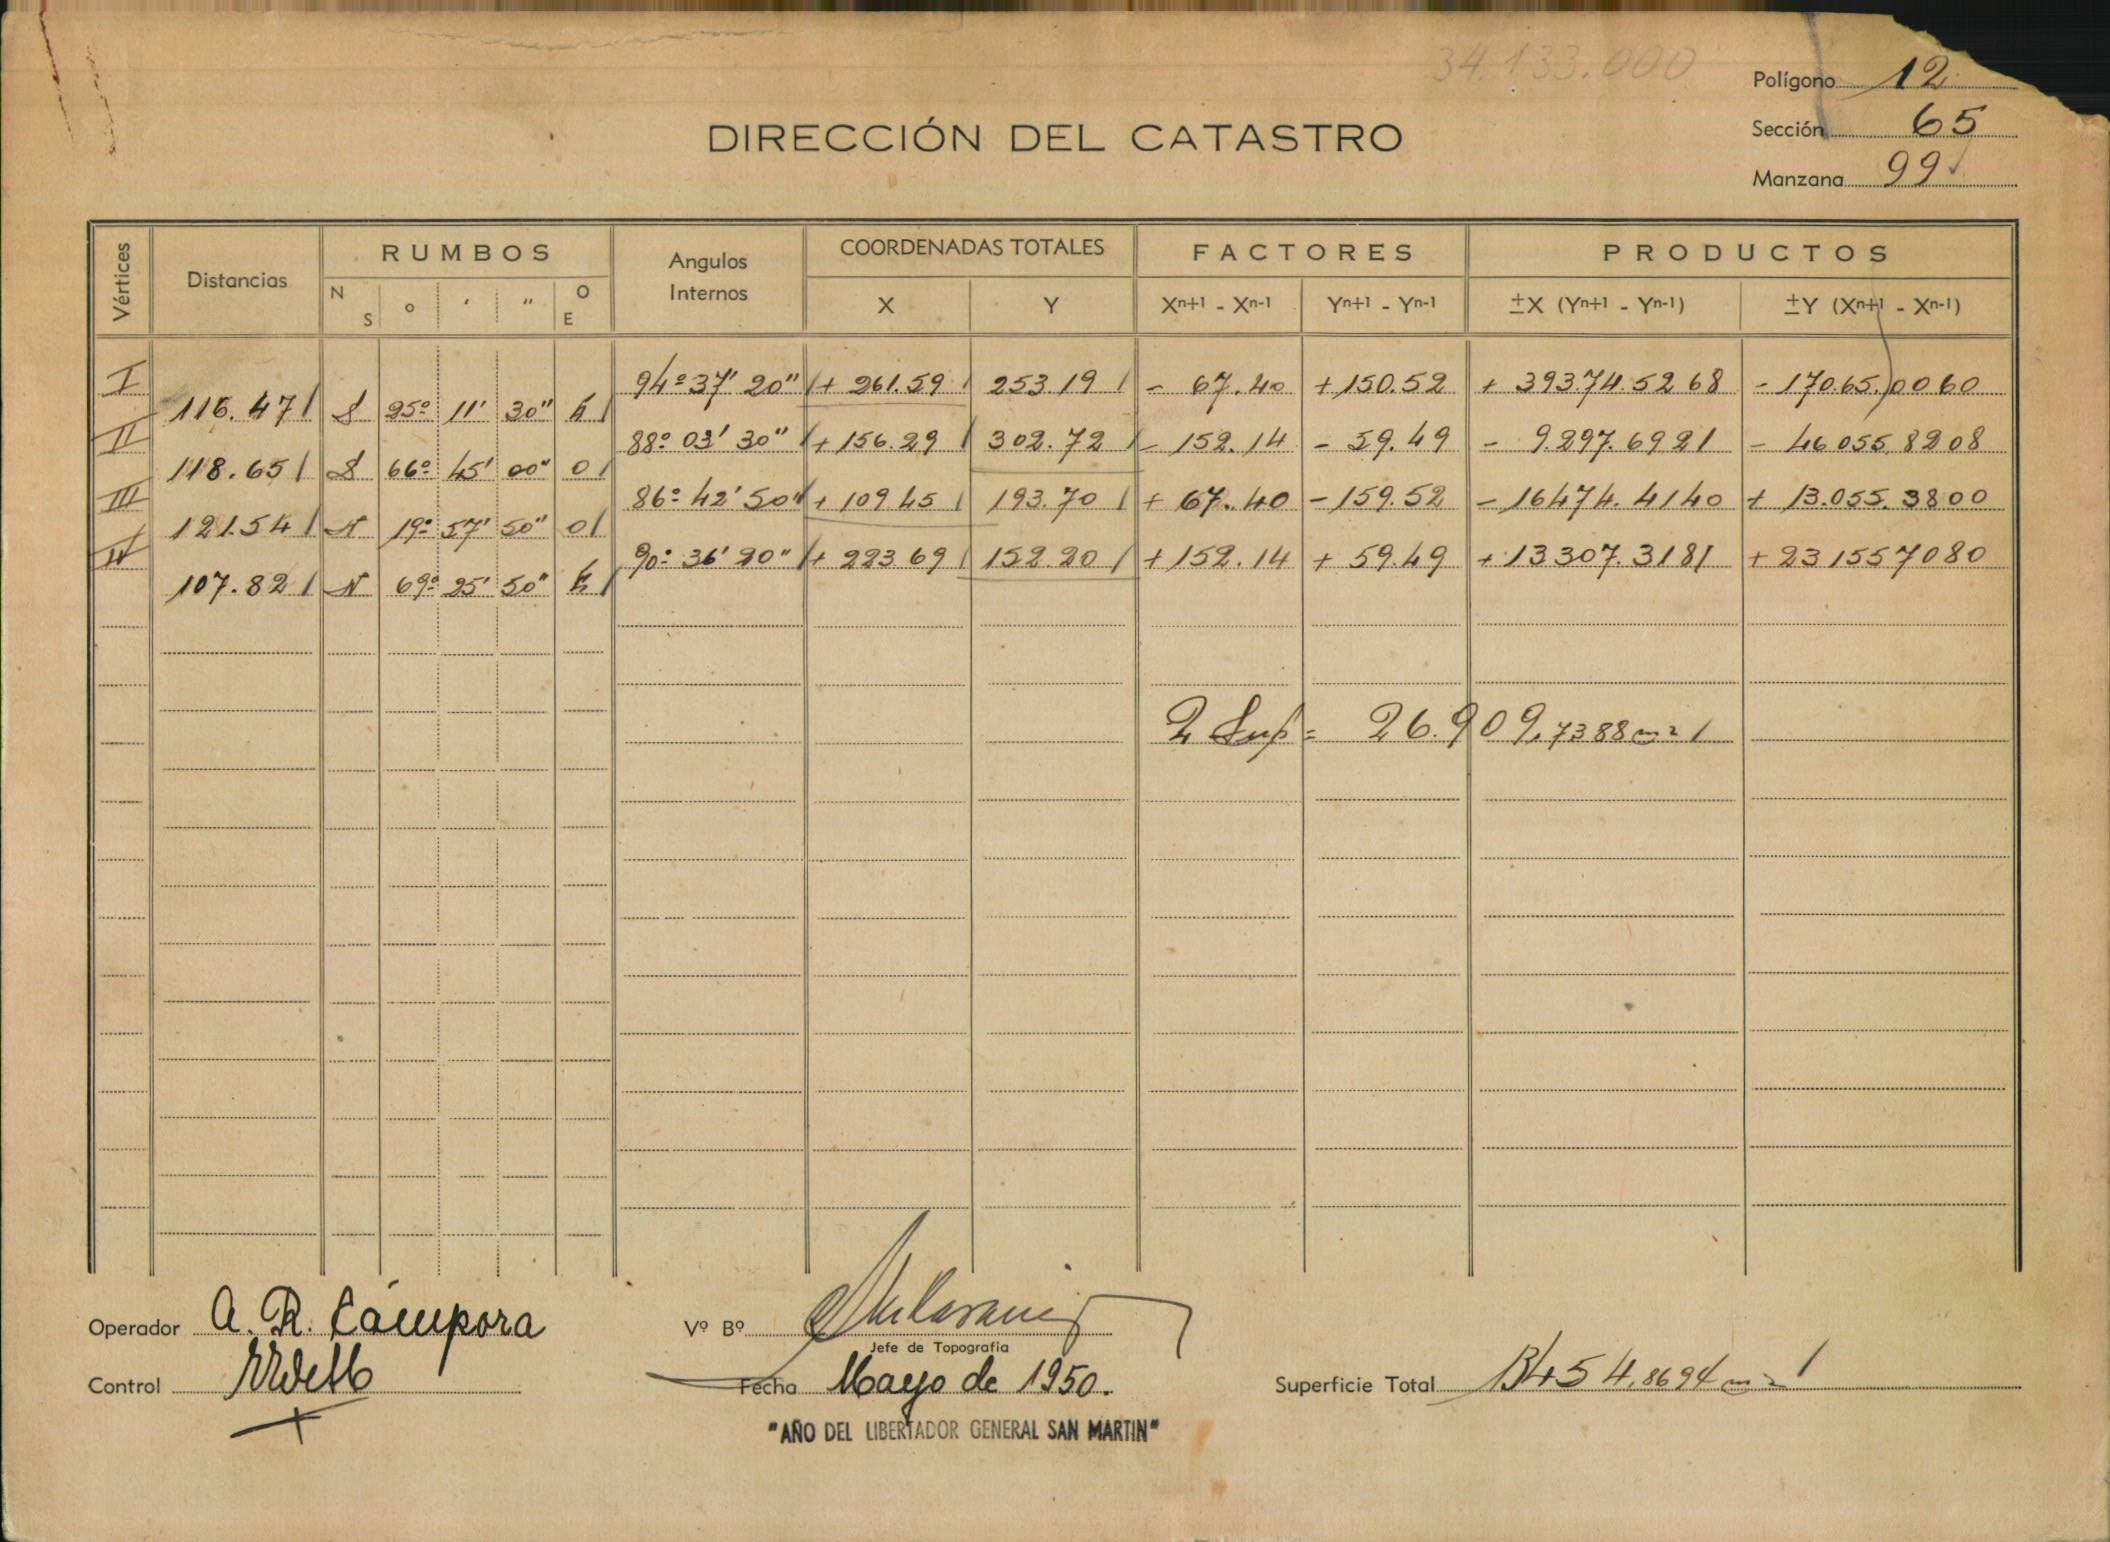 34.133.000
Polígono 12
Sección 65
Manzana 99
DIRECCIÓN DEL CATASTRO
Vértices Distancias RUMBOS Angulos Internos COORDENADAS TOTALES FACTORES PRODUCTOS
N S o ′ ″ O E X Y Xn+1 - Xn-1 Yn+1 - Yn-1 ±X (Yn+1 - Yn-1) ±Y (Xn+1 - Xn-1)
I 94º 37' 20" + 261.59 253.19 - 67.40 + 150.52 + 39374.5268 - 17065.0060
116.47 S 25º 11' 30" E
II 88º 03' 30" + 156.29 302.72 - 152.14 - 59.49 - 9.297.6921 - 46055.8208
118.65 S 66º 45' 00" O
III 86º 42' 50" + 109.45 193.70 + 67.40 - 159.52 - 16474.4140 + 13.055.3800
121.54 N 19º 57' 50" O
IV 90º 36' 20" + 223.69 152.20 + 152.14 + 59.49 + 13307.3181 + 231557080
107.82 N 69º 25' 50" E
2 Sup = 26.909,7388 m2
Operador A. R. Cámpora
Vº Bº
Jefe de Topografía
Control
Fecha Mayo de 1950.
Superficie Total 13454,8694 m2
"AÑO DEL LIBERTADOR GENERAL SAN MARTIN"